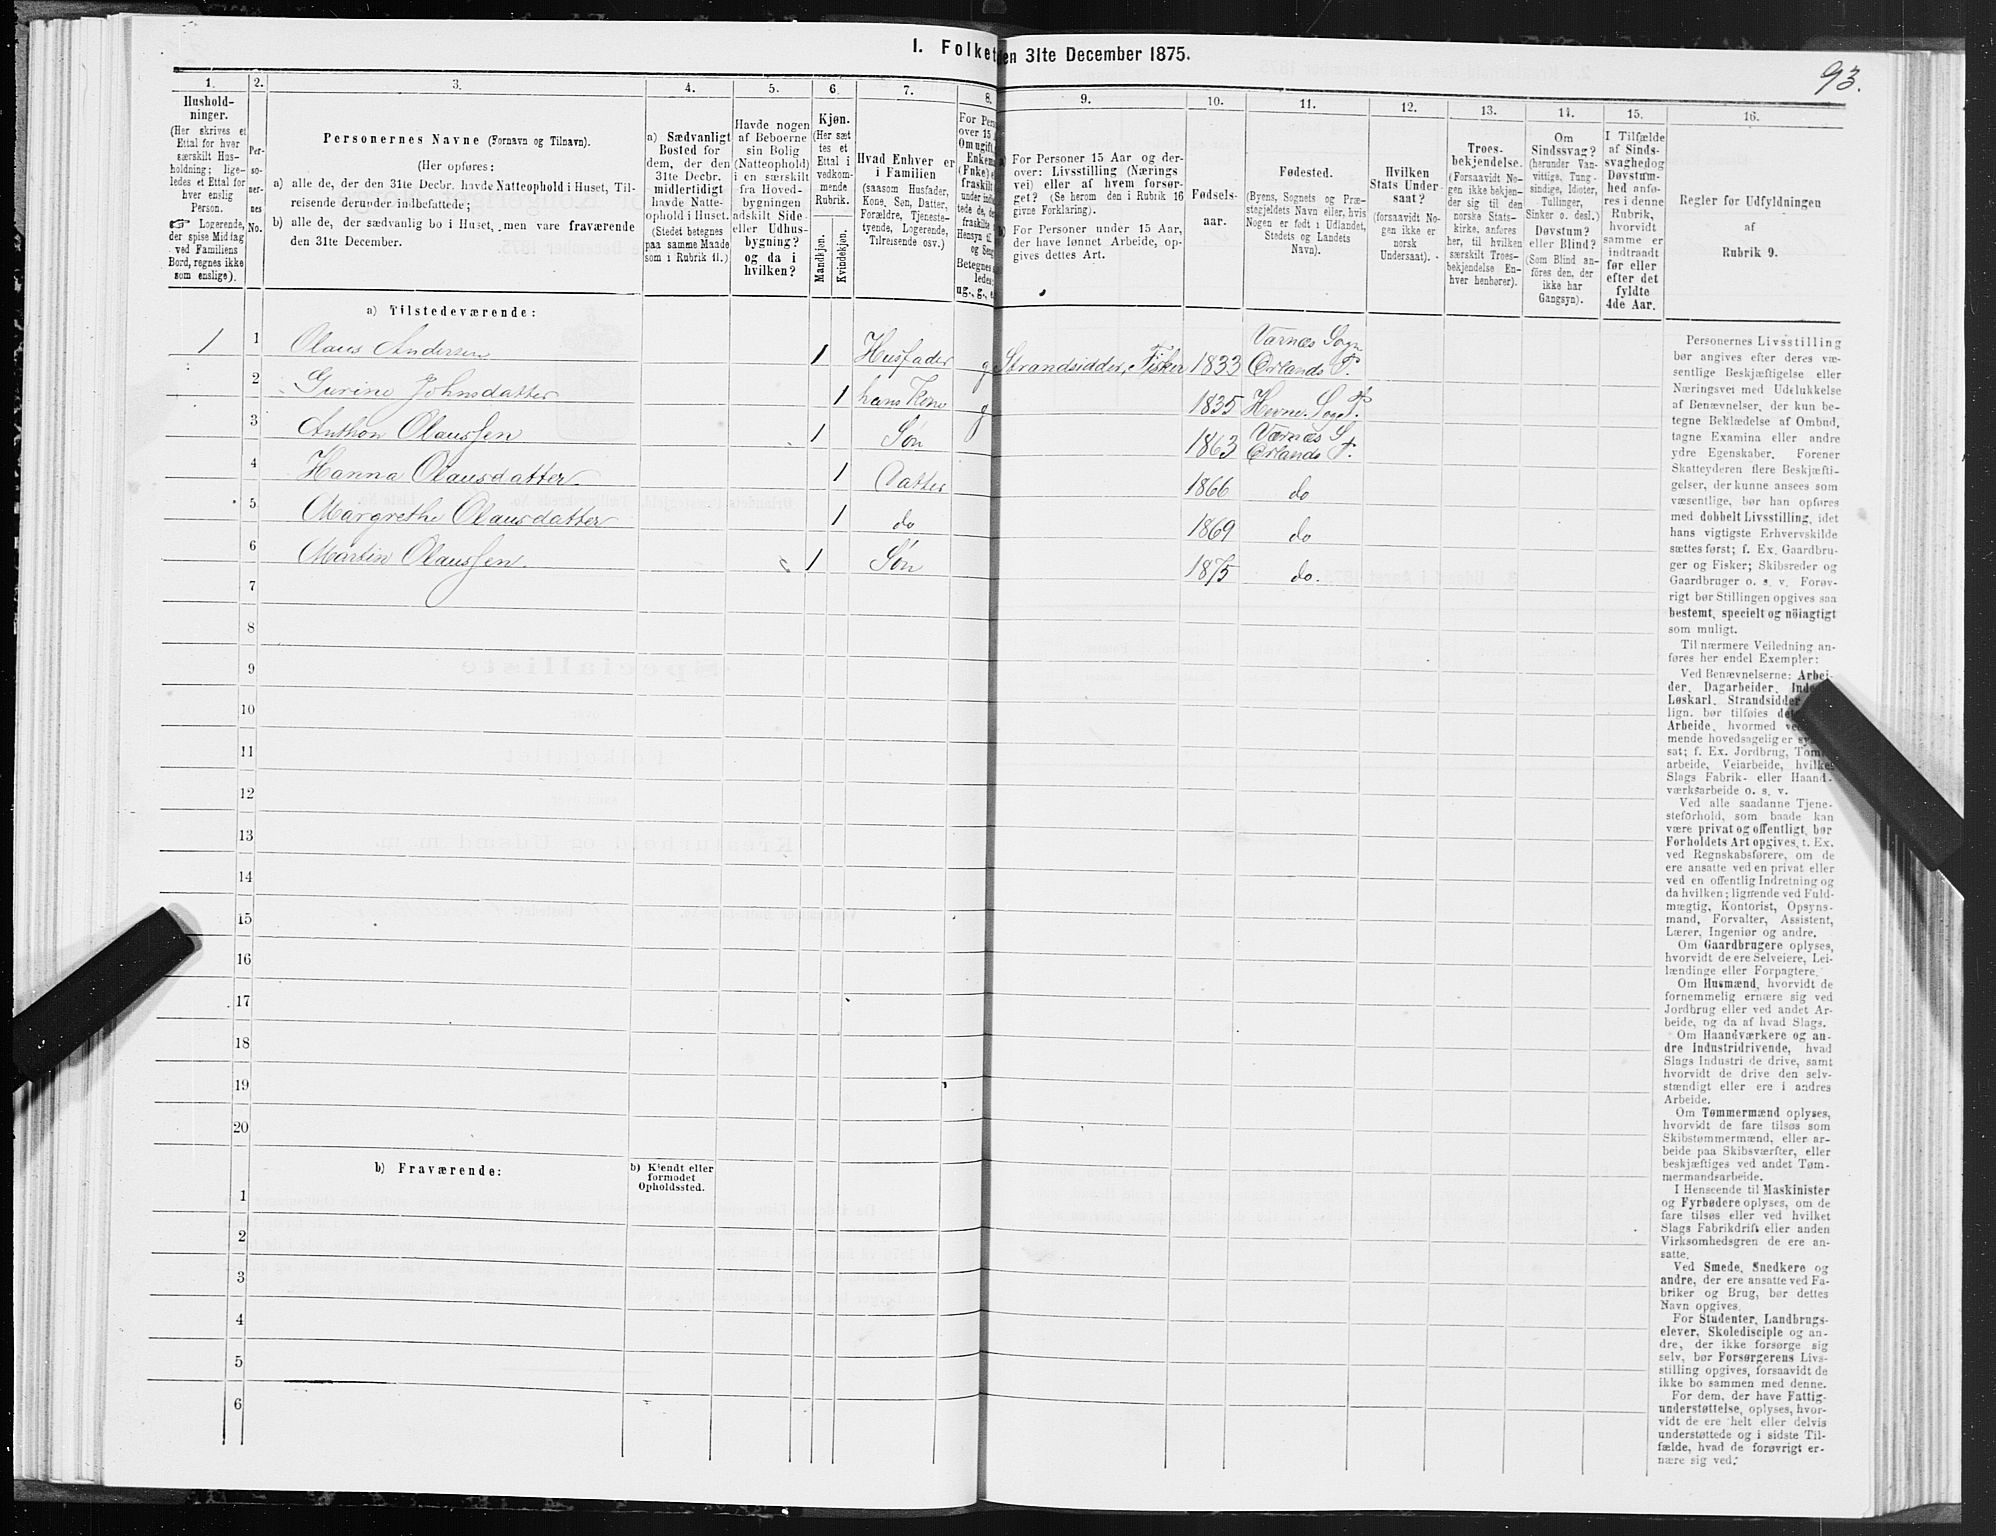 I. Folket
en 31te December 1875.
93.
1.
Hushold-
ninger.
(Her skrives et
Ettal for hver
særskilt Hus-
holdning; lige-
ledes et Ettal for
hver enslig
Person.
☞ Logerende,
der spise Middag
ved Familiens
Bord, regnes ikke
som enslige).
2.
Per-
so-
ner-
nes
No.
3.
Personernes Navne (Fornavn og Tilnavn).
(Her opføres:
a) alle de, der den 31te Decbr. havde Natteophold i Huset, Til-
reisende derunder indbefattede;
b) alle de, der sædvanlig bo i Huset, men vare fraværende
den 31te December.
4.
a) Sædvanligt
Bosted for
dem, der den
31te Decbr.
midlertidigt
havde Natte-
ophold i Huset.
(Stedet betegnes
paa samme Maade
som i Rubrik 11.)
5.
Havde nogen
af Beboerne
sin Bolig
(Natteophold)
i en særskilt
fra Hoved-
bygningen
adskilt Side-
eller Udhus-
bygning?
og da i
hvilken?
6.
Kjøn.
(Her sæt-
tes et
Ettal i
vedkom-
mende
Rubrik.
Mandkjøn.
Kvindekjøn.
7.
Hvad Enhver er
i Familien
(saasom Husfader,
Kone, Søn, Datter,
Forældre, Tjeneste-
tyende, Logerende,
Tilreisende osv.)
8.
For Pers
over 15
Om ugift,
Enkem
(Fnke)
fraskilt
under ind
tede de,
fraskilte
Hensyn til
og Seng
Betegnes
ledes:
ug., g., e
9.
a) For Personer 15 Aar og der-
over: Livsstilling (Nærings-
vei) eller af hvem forsør-
get? (Se herom den i Rubrik 16
givne Forklaring).
b) For Personer under 15 Aar,
der have lønnet Arbeide, op-
gives dettes Art.
10.
Fødsels-
aar.
11.
Fødested.
(Byens, Sognets og Præ-
stegjeldets Navn eller, hvis
Nogen er født i Udlandet,
Stedets og Landets
Navn).
12.
Hvilken
Stats Under-
saat?
(forsaavidt No-
gen ikke er
norsk
Undersaat).
13.
Troes-
bekjendelse.
(Forsaavidt No-
gen ikke bekjen-
der sig til den
norske Stats-
kirke, anføres
her, til hvilken
særskilt Troes-
bekjendelse En-
hver henhører).
14.
Om
Sindssvag?
(herunder Van-
vittige, Tung-
sindige, Idioter,
Tullinger,
Sinker o. desl.)
Døvstum?
eller Blind?
(Som Blind an-
føres den, der
ikke har
Gangsyn).
15.
I Tilfælde
af Sinds-
svaghed og
Døvstum-
hed anfø-
res i denne
Rubrik,
hvorvidt
samme er
indtraadt
før eller
efter det
fyldte
4de Aar.
16.
Regler for Udfyldningen
af
Rubrik 9.
a) Tilstedeværende:
1 1 Olaus Andersen 1 Husfader g Strandsidder, Fisker 1833 Værnæs Sogn Ørlands P.
2 Gurine Johnsdatter 1 hans Kone g 1835 Hevne Sogn P.
3 Anthon Olaussen 1 Søn 1863 Værnæs S Ørlands P.
4 Hanna Olausdatter 1 Datter 1866 do
5 Margrethe Olausdatter 1 do 1869 do
6 Martin Olaussen 1 Søn 1875 do.
7
8
9
10
11
12
13
14
15
16
17
18
19
20
b) Fraværende:
b) Kjendt eller
formodet
Opholdssted.
1
2
3
4
5
6
Personernes Livsstilling
bør angives efter deres væ-
sentlige Beskjæftigelse eller
Næringsvei med Udelukkelse
af Benævnelser, der kun be-
tegne Beklædelse af Ombud,
tagne Examina eller andre
ydre Egenskaber. Forener
Skatteyderen flere Beskjæfti-
gelser, der kunne ansees som
væsentlige, bør han opføres
med dobbelt Livsstilling, idet
hans vigtigste Erhvervskilde
sættes først; f. Ex. Gaardbru-
ger og Fisker; Skibsreder og
Gaardbruger o. s. v. Forøv-
rigt bør Stillingen opgives saa
bestemt, specielt og nöiagtigt
som muligt.
Til nærmere Veiledning an-
føres her endel Exempler:
Ved Benævnelserne: Arbei-
der, Dagarbeider, Inde
Løskarl, Strandsidder
lign. bør tilføies det
Arbeide, hvormed ved
mende hovedsagelig er sys
sat; f. Ex. Jordbrug, Tøm
arbeide, Veiarbeide, hvilket
Slags Fabrik- eller Haand-
værksarbeide o. s. v.
Ved alle saadanne Tjene-
steforhold, som baade kan
være privat og offentligt, bør
Forholdets Art opgives, t. Ex.
ved Regnskabsførere, om de
ere ansatte ved en privat eller
ved en offentlig Indretning og
da hvilken; lignende ved Fuld-
mægtig, Kontorist, Opsyns-
mand, Forvalter, Assistent,
Lærer, Ingeniør og andre.
Om Gaardbrugere oplyses,
hvorvidt de ere Selveiere, Lei-
lændinge eller Forpagtere.
Om Husmænd, hvorvidt de
fornemmelig ernære sig ved
Jordbrug eller ved andet Ar-
beide, og da af hvad Slags.
Om Haandværkere og an-
dre Industridrivende, hvad
Slags Industri de drive, samt
hvorvidt de drive den selv-
stændigt eller ere i andres
Arbeide.
Om Tømmermænd oplyses,
hvorvidt de fare tilsøs som
Skibstømmermænd, eller ar-
beide paa Skibsværfter, eller
beskjæftiges ved andet Tøm-
mermandsarbeide.
I Henseende til Maskinister
og Fyrbødere oplyses, om de
fare tilsøs eller ved hvilket
Slags Fabrikdrift eller anden
Virksomhedsgren de ere an-
satte.
Ved Smede, Snedkere og
andre, der ere ansatte ved Fa-
briker og Brug, bør dettes
Navn opgives.
For Studenter, Landbrugs-
elever, Skoledisciple og an-
dre, der ikke forsørge sig
selv, bør Forsørgerens Livs-
stilling opgives, forsaavidt de
ikke bo sammen med denne.
For dem, der have Fattig-
understøttelse, oplyses, hvor-
vidt de ere helt eller delvis
understøttede og i sidste Til-
fælde, hvad de forøvrigt er-
nære sig ved.